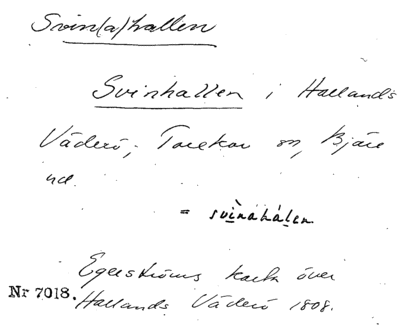 Svin(a)hallen
Svinhallen i Hallands
Väderö, Torekov sn, Bjäre
hd.
= svìnahálen
Egerströms karta över
Nr 7018. Hallands Väderö 1808.